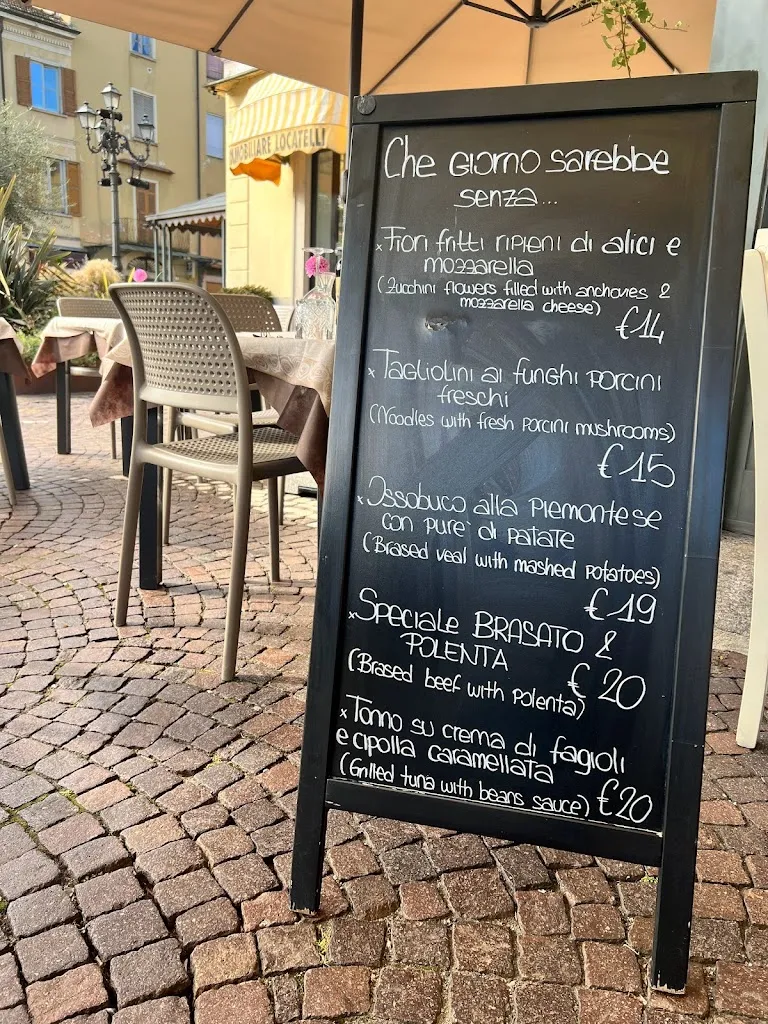 IMMOBILIARE LOCATELLI
Che GIORNO sarebbe
senza...
x Fiori fritti ripieni di alici e
mozzarella
(Zucchini flowers filled with anchovies &
mozzarella cheese)
€14
x Tagliolini ai funghi porcini
freschi
(Noodles with fresh porcini mushrooms)
€15
x Ossobuco alla Piemontese
con pure' di patate
(Brased veal with mashed potatoes)
€19
x Speciale BRASATO &
POLENTA
€20
(Brased beef with polenta)
x Tonno su crema di fagioli
e cipolla caramellata
(Grilled tuna with beans sauce) €20